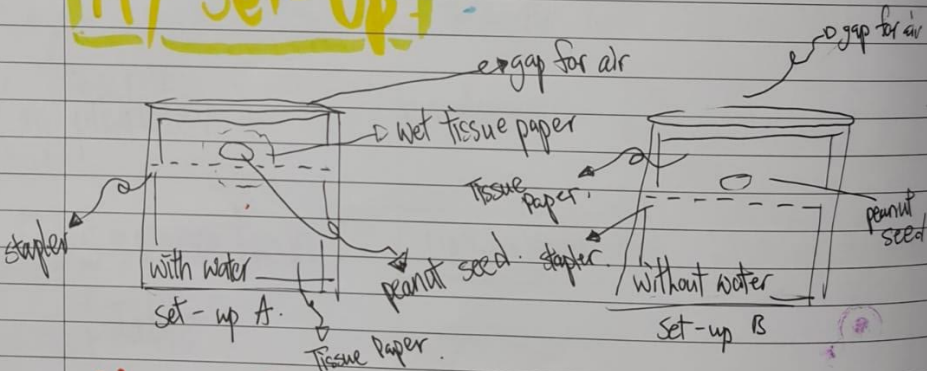 my set-up:
gap for air
gap for air
wet tissue paper
Tissue
paper.
peanut
seed
stapler
peanut seed.
stapler
with water
without water
set-up A.
set-up B
Tissue Paper.